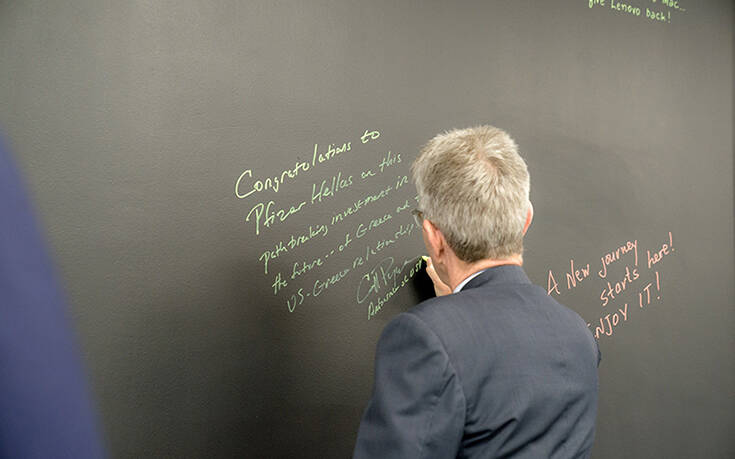 give Lenovo back!
Congratulations to
Pfizer Hellas on this
pathbreaking investment in
the future... of Greece and
US-Greece relationship
A New journey
starts here!
ENJOY IT!